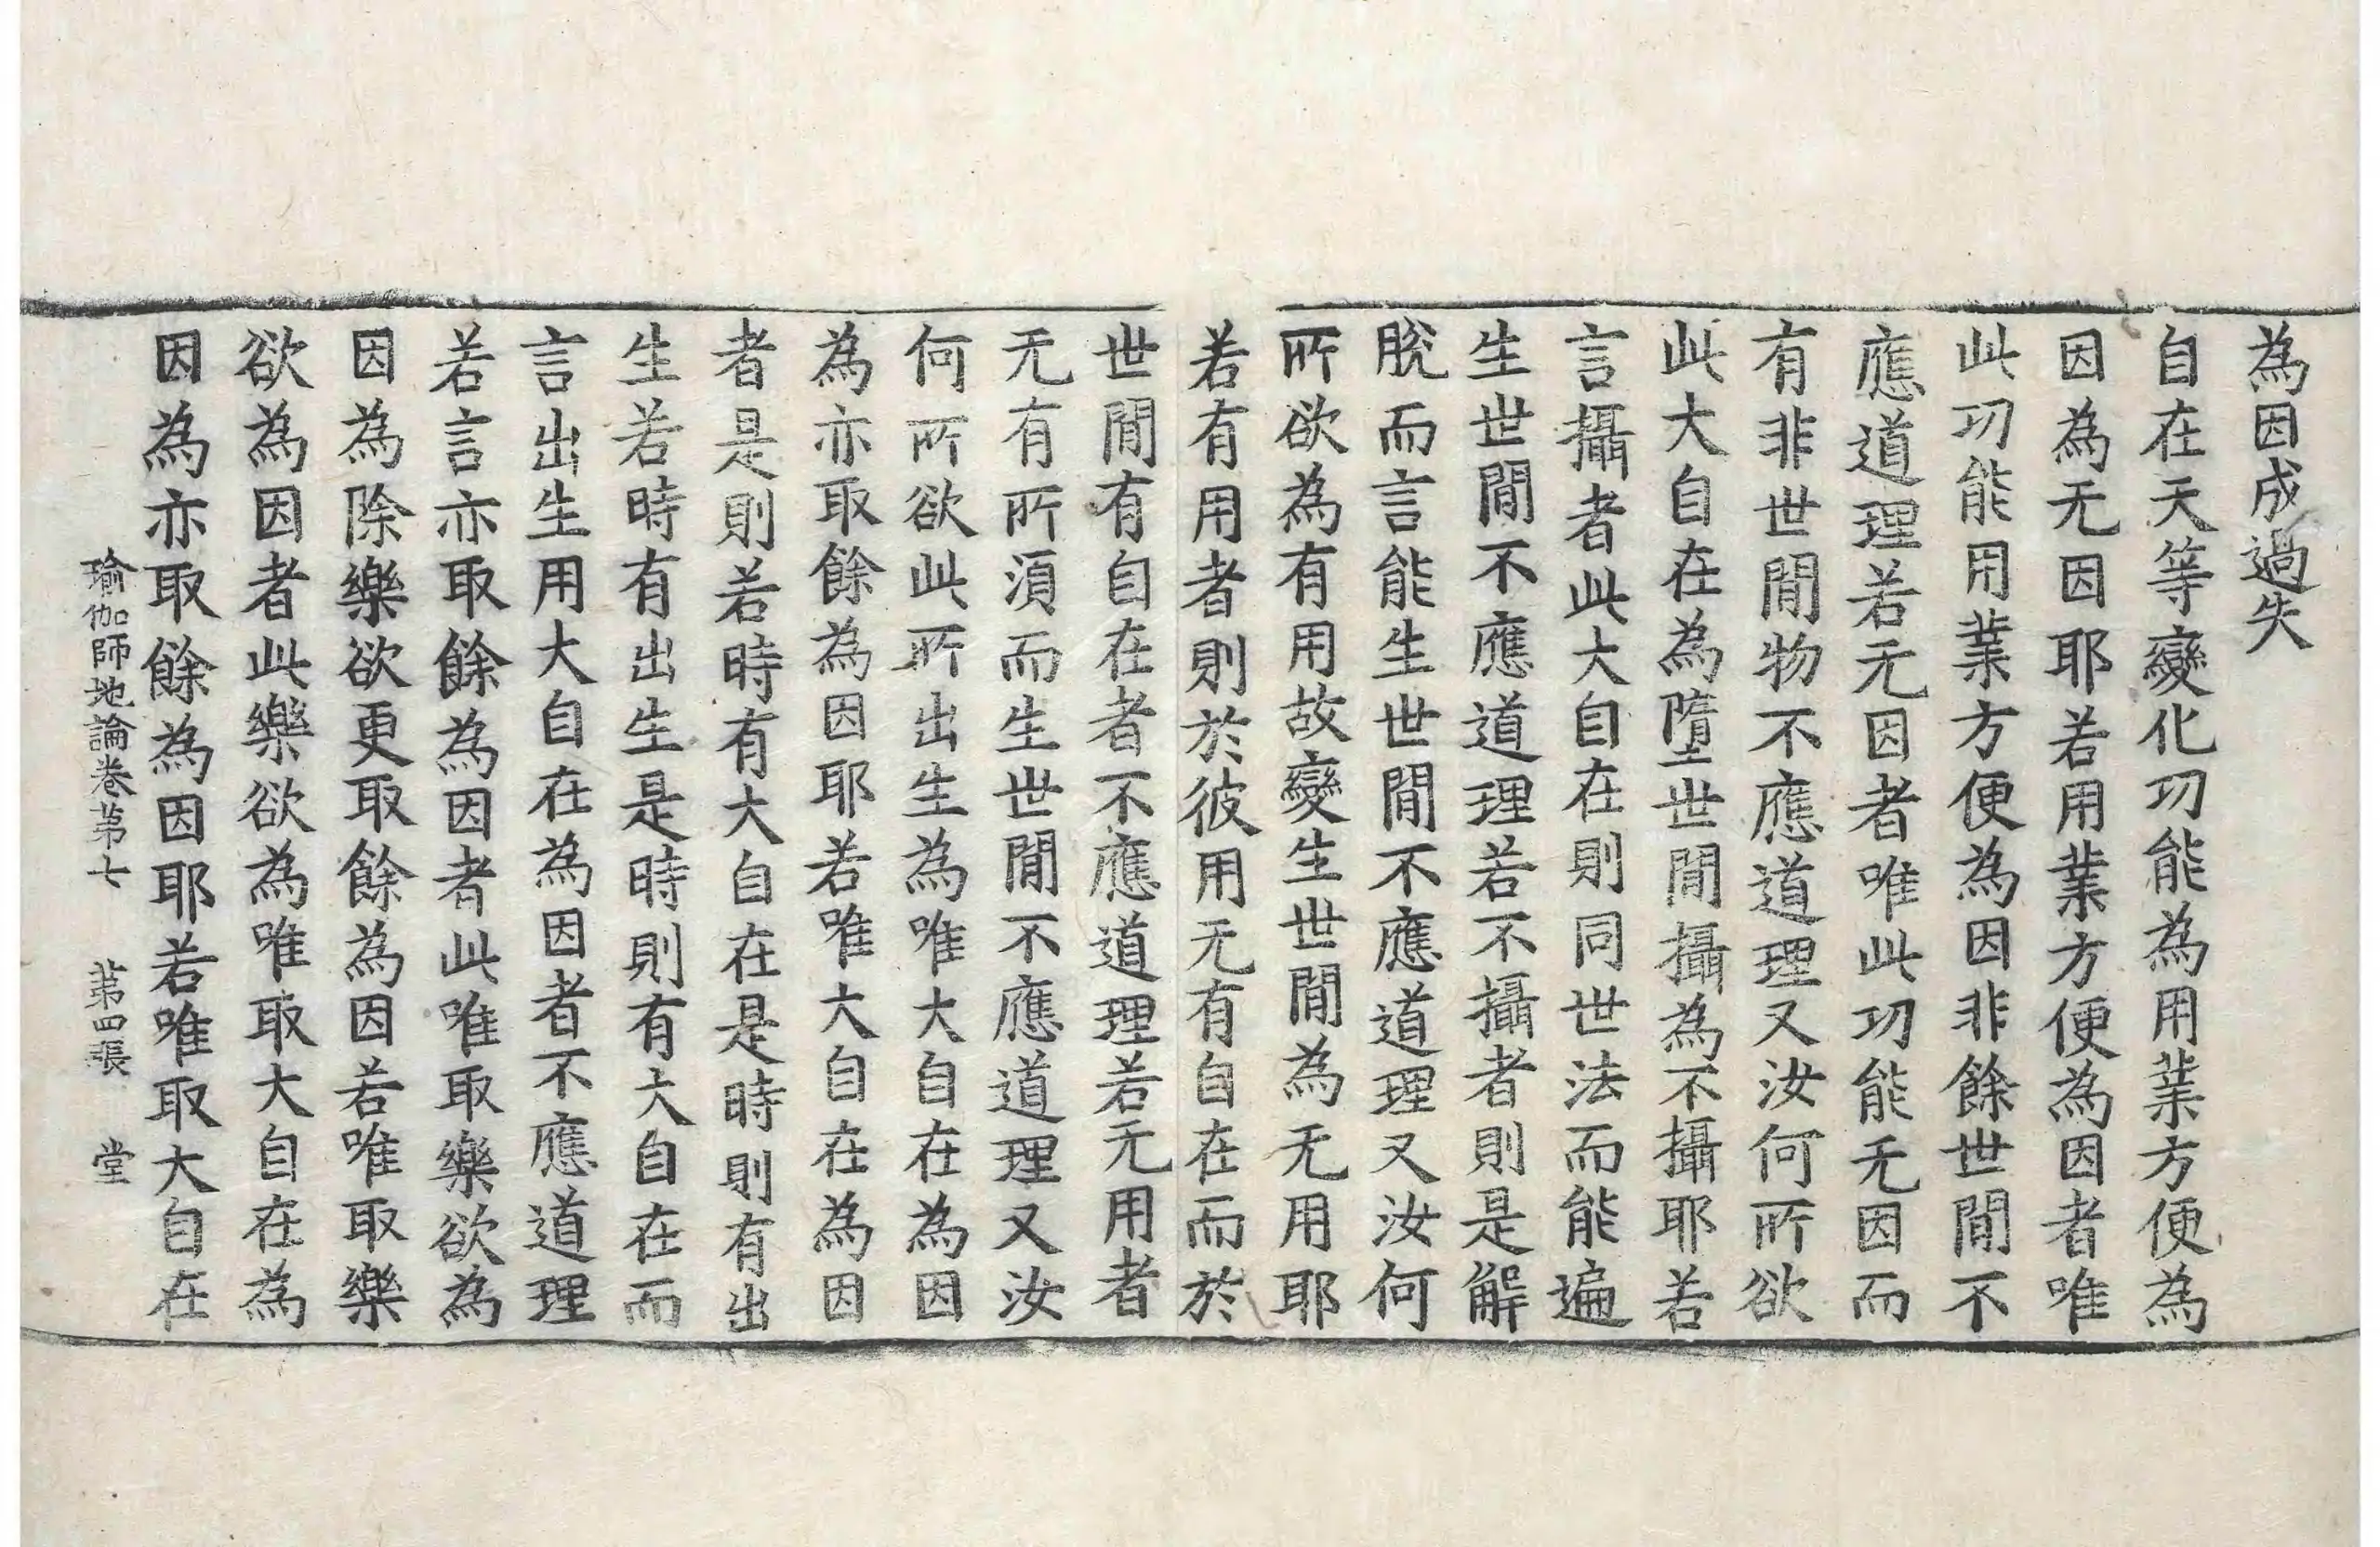 為因成過失
自在天等變化功能為用業方便為
因為无因耶若用業方便為因者唯
此功能用業方便為因非餘世間不
應道理若无因者唯此功能无因而
有非世間物不應道理又汝何所欲
此大自在為墮世間攝為不攝耶若
言攝者此大自在則同世法而能遍
生世間不應道理若不攝者則是解
脫而言能生世間不應道理又汝何
所欲為有用故變生世間為无用耶
若有用者則於彼用无有自在而於
世間有自在者不應道理若无用者
无有所須而生世間不應道理又汝
何所欲此所出生為唯大自在為因
為亦取餘為因耶若唯大自在為因
者是則若時有大自在是時則有出
生若時有出生是時則有大自在而
言出生用大自在為因者不應道理
若言亦取餘為因者此唯取樂欲為
因為除樂欲更取餘為因若唯取樂
欲為因者此樂欲為唯取大自在為
因為亦取餘為因耶若唯取大自在
瑜伽師地論卷第七 第四張 堂